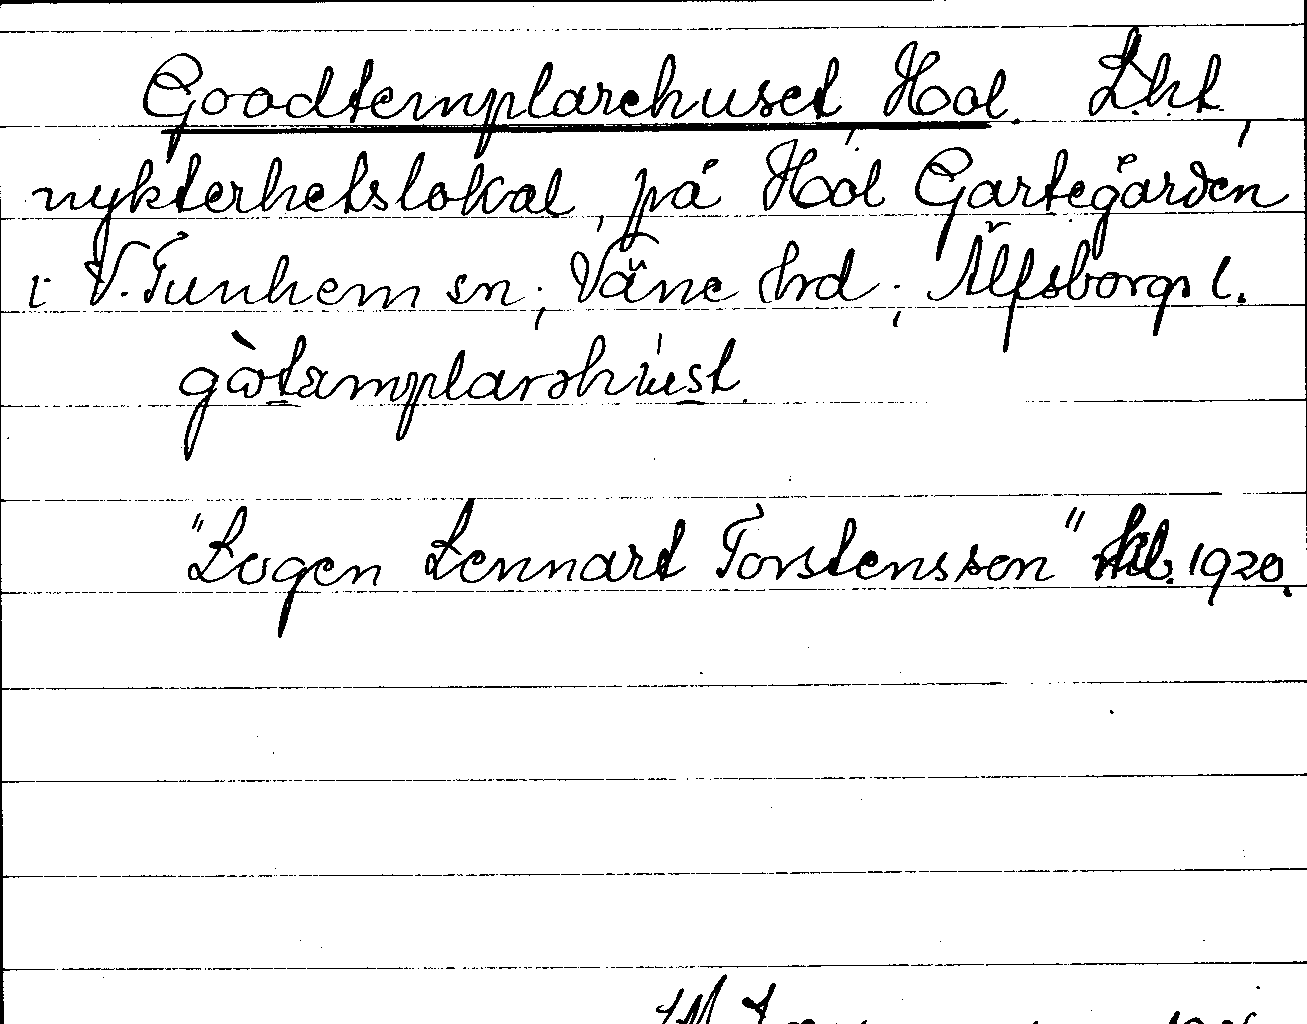 Goodtemplarehuset, Hol. Lht,
nykterhetslokal, på Hol Gartegården
i V. Tunhem sn; Väne hrd; Älfsborgs l.
gòtamplarshúst.
"Logen Lennart Torstensson" 1920.